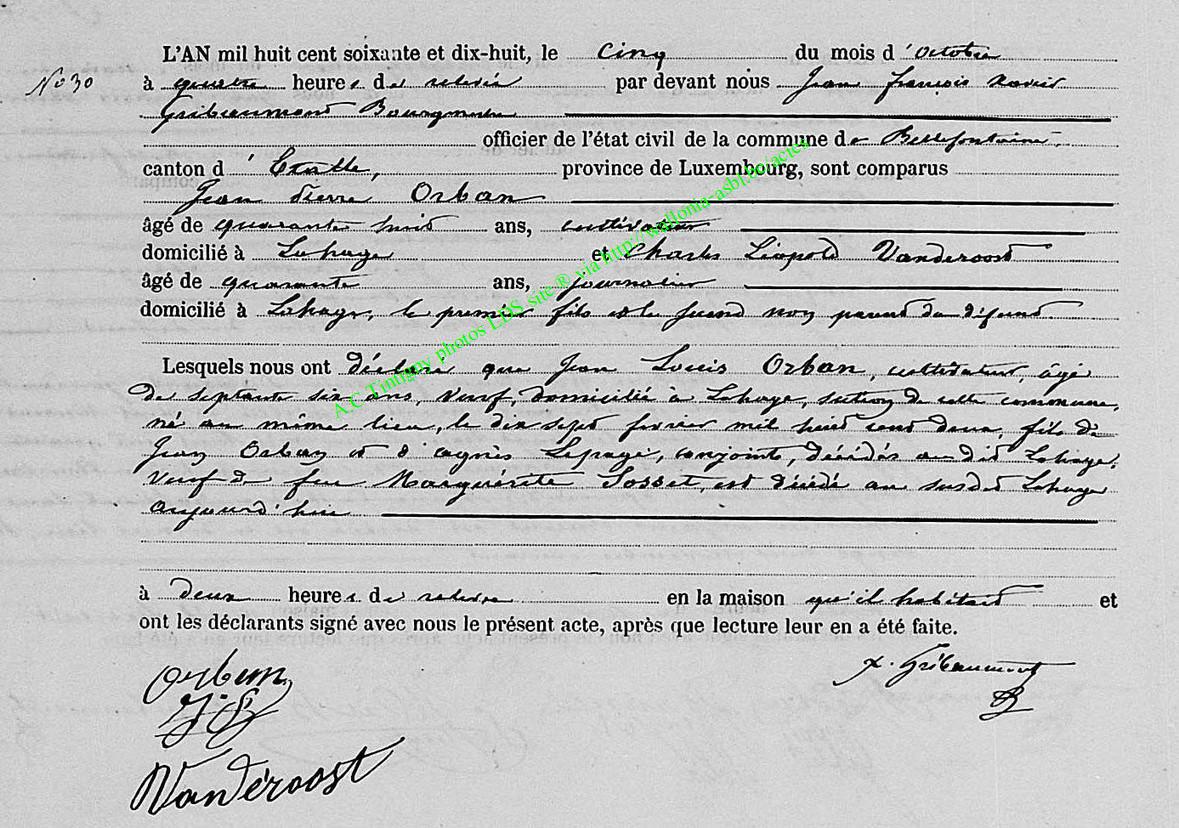 L'AN mil huit cent soixante et dix-huit, le Cinq du mois d'octobre
No 30 à quatre heures de relevée par devant nous Jean françois xavier
Gribaumont Bourgmestre
officier de l'état civil de la commune de Bellefontaine,
canton d'Etalle, province de Luxembourg, sont comparus
Jean Pierre Orban
âgé de quarante huit ans, cultivateur
domicilié à Lahage et Charles Léopold Vanderoost
âgé de quarante ans, journalier
domicilié à Lahage, le premier fils et le second non parent du défunt.
Lesquels nous ont déclaré que Jean Louis Orban, cultivateur, âgé
de septante six ans, veuf, domicilié à Lahage, section de cette commune,
né au même lieu, le dix sept février mil huit cent deux, fils de
Jean Orban et d'agnès Lepage, conjoints, décédés audit Lahage,
veuf de feue Marguerite Sosset, est décédé au susdit Lahage
aujourd'hui
à deux heures de relevée en la maison qu'il habitait et
ont les déclarants signé avec nous le présent acte, après que lecture leur en a été faite.
Orban x. Gribaumont
J.P.
Vandéroost
A.C Tintigny photos LDS site ® via http://wallonia-asbl.be/actes